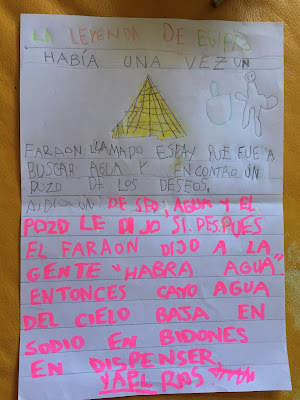 LA LEYENDA DE EGIPTO
HABÍA UNA VEZ UN
FARAON LLAMADO ESPAY QUE FUE A
BUSCAR AGUA Y ENCONTRO UN
POZO DE LOS DESEOS.
PIDIO UN DESEO, AGUA Y EL
POZO LE DIJO SI. DESPUES
EL FARAON DIJO A LA
GENTE "HABRA AGUA".
ENTONCES CAYO AGUA
DEL CIELO BAJA EN
SODIO EN BIDONES
EN DISPENSER.
YAEL RIOS